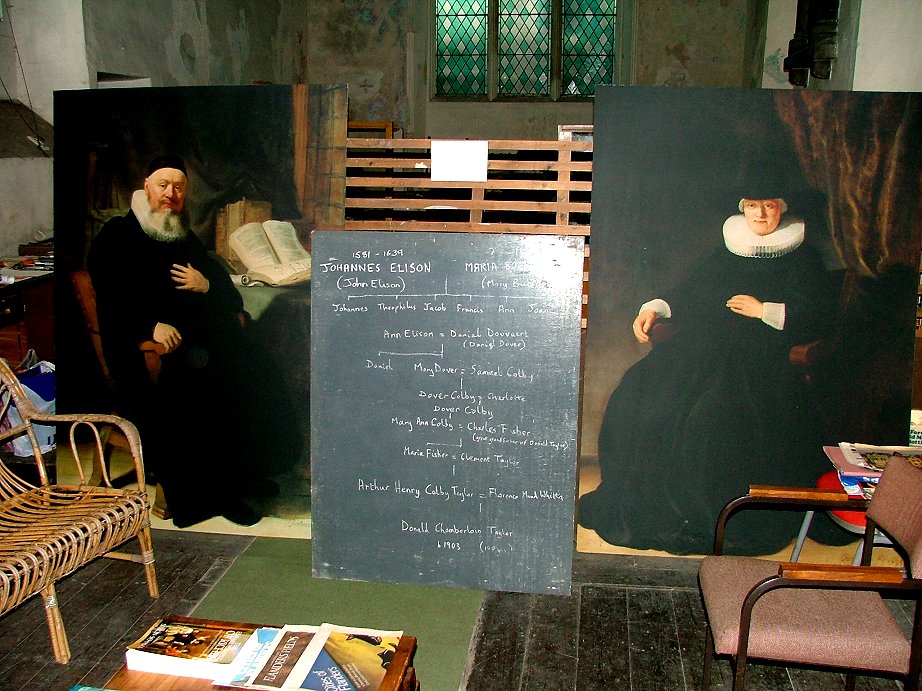 1581 - 1639
JOHANNES ELISON MARIA
(John Elison) (Mary
Johannes Theophilus Jacob Francis Ann Joan
Ann Elison = Daniel Douvaert
(Daniel Dover)
Daniel Mary Dover = Samuel Colby
Dover Colby = Charlotte
Dover Colby
Mary Ann Colby = Charles Fisher
(great grandfather of Donald Taylor)
Maria Fisher = Clement Taylor
Arthur Henry Colby Taylor = Florence Maud
Donald Chamberlain Taylor
b 1903
FLANDERS
of
Flanders